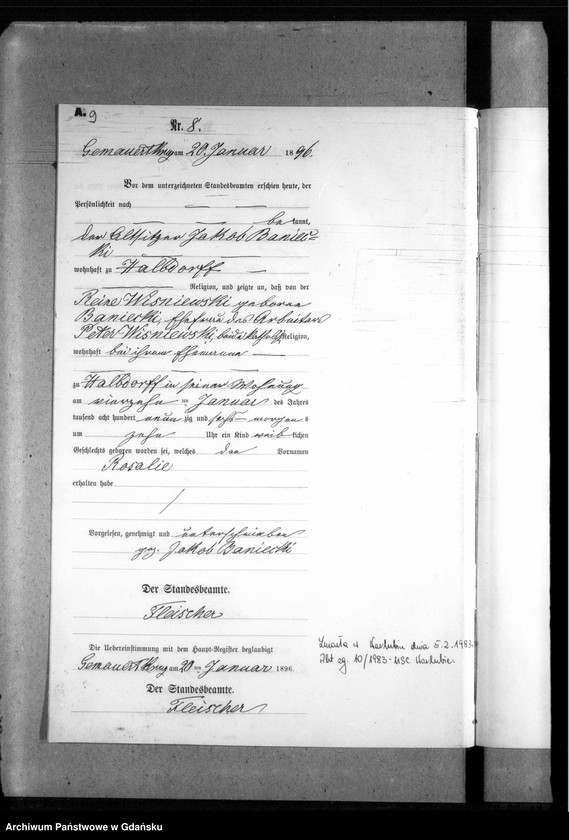 A.
9
Nr. 8.
Gemauert Krug am 20. Januar 1896.
Vor dem unterzeichneten Standesbeamten erschien heute, der
Persönlichkeit nach
bekannt,
der Altsitzer Jakob Baniec-
ki
wohnhaft zu Halbdorff
Religion, und zeigte an, daß von der
Reine Wisniewski geborene
Baniecki, Ehefrau des Arbeiters
Peter Wisniewski, beide kathol. Religion,
wohnhaft bei ihrem Ehemanne
zu Halbdorff in seiner Wohnung
am vierzehn ten Januar des Jahres
tausend acht hundert neunzig und sechs morgens
um zehn Uhr ein Kind weiblichen
Geschlechts geboren worden sei, welches den Vornamen
Rosalie
erhalten habe
Vorgelesen, genehmigt und unterschrieben
gez. Jakob Baniecki
Der Standesbeamte.
Fleischer
Die Uebereinstimmung mit dem Haupt-Register beglaubigt
Gemauert Krug am 20 ten Januar 1896.
Der Standesbeamte.
Fleischer
Zmarła w dnia 5.2.1983.
Akt zg. 10/1983 - USC
Archiwum Państwowe w Gdańsku